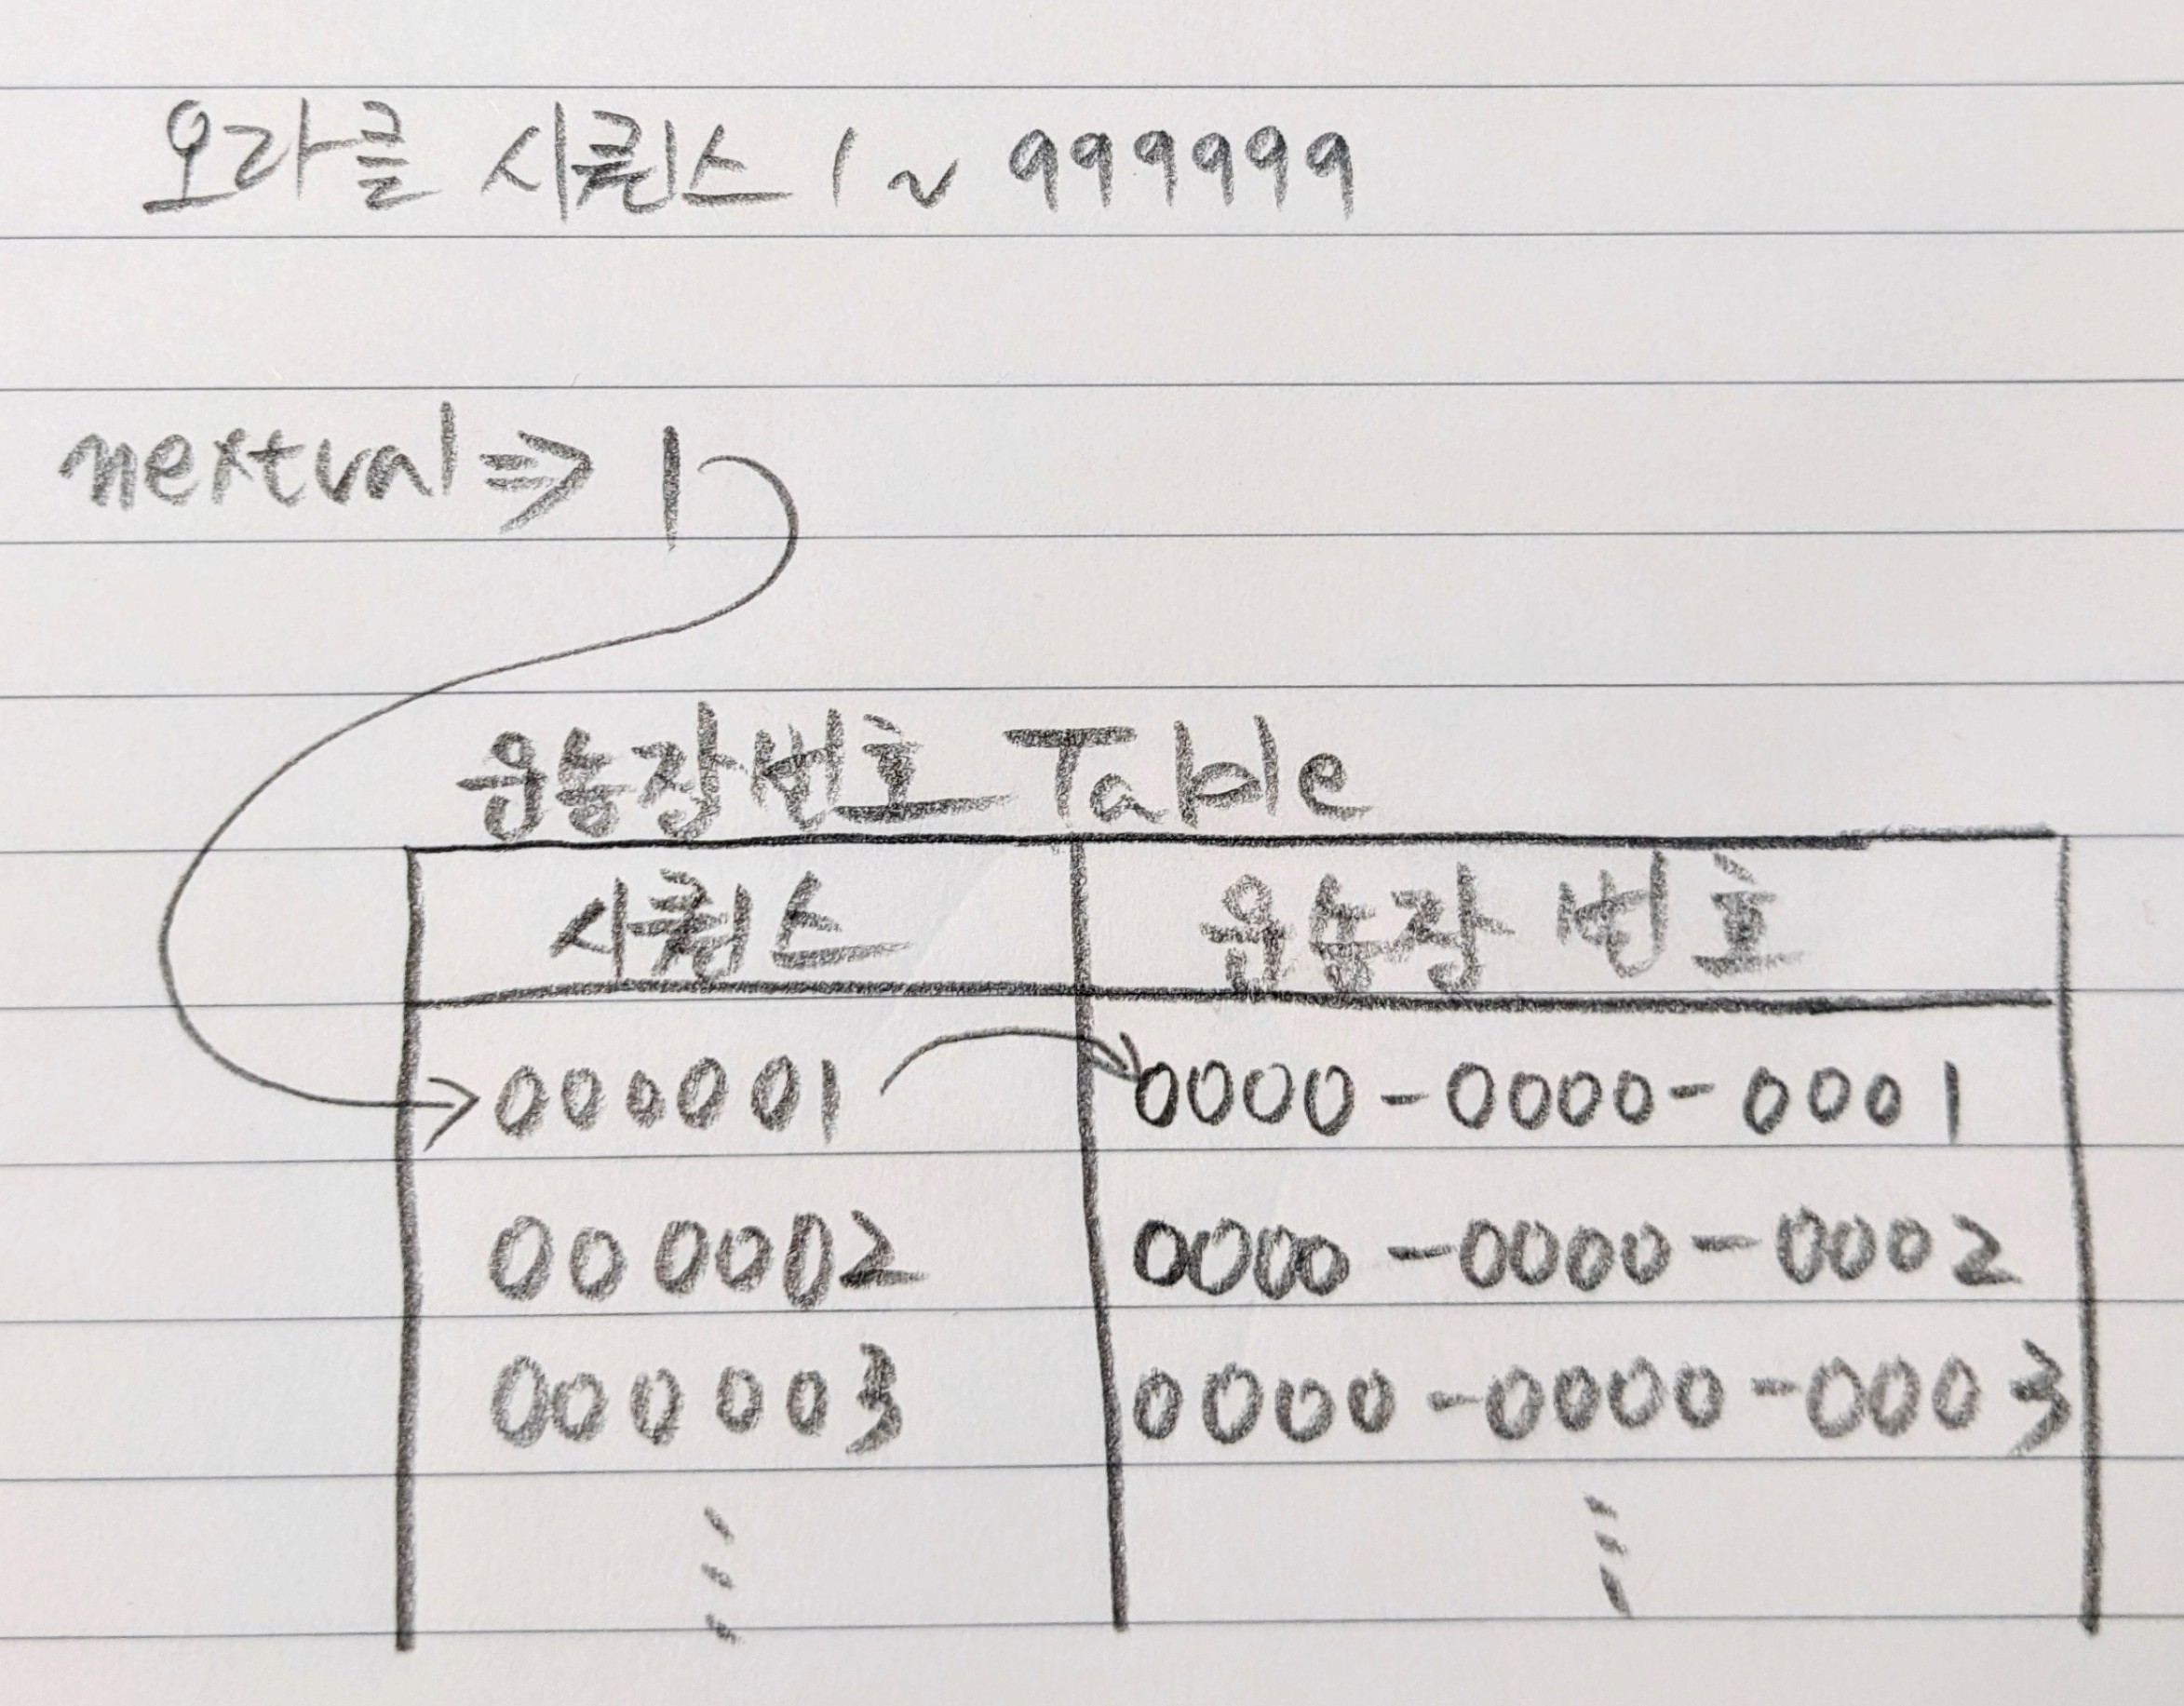 오라클 시퀀스 1 ~ 999999
nextval => 1
운송장번호 Table
시퀀스 운송장 번호
000001 0000-0000-0001
000002 0000-0000-0002
000003 0000-0000-0003